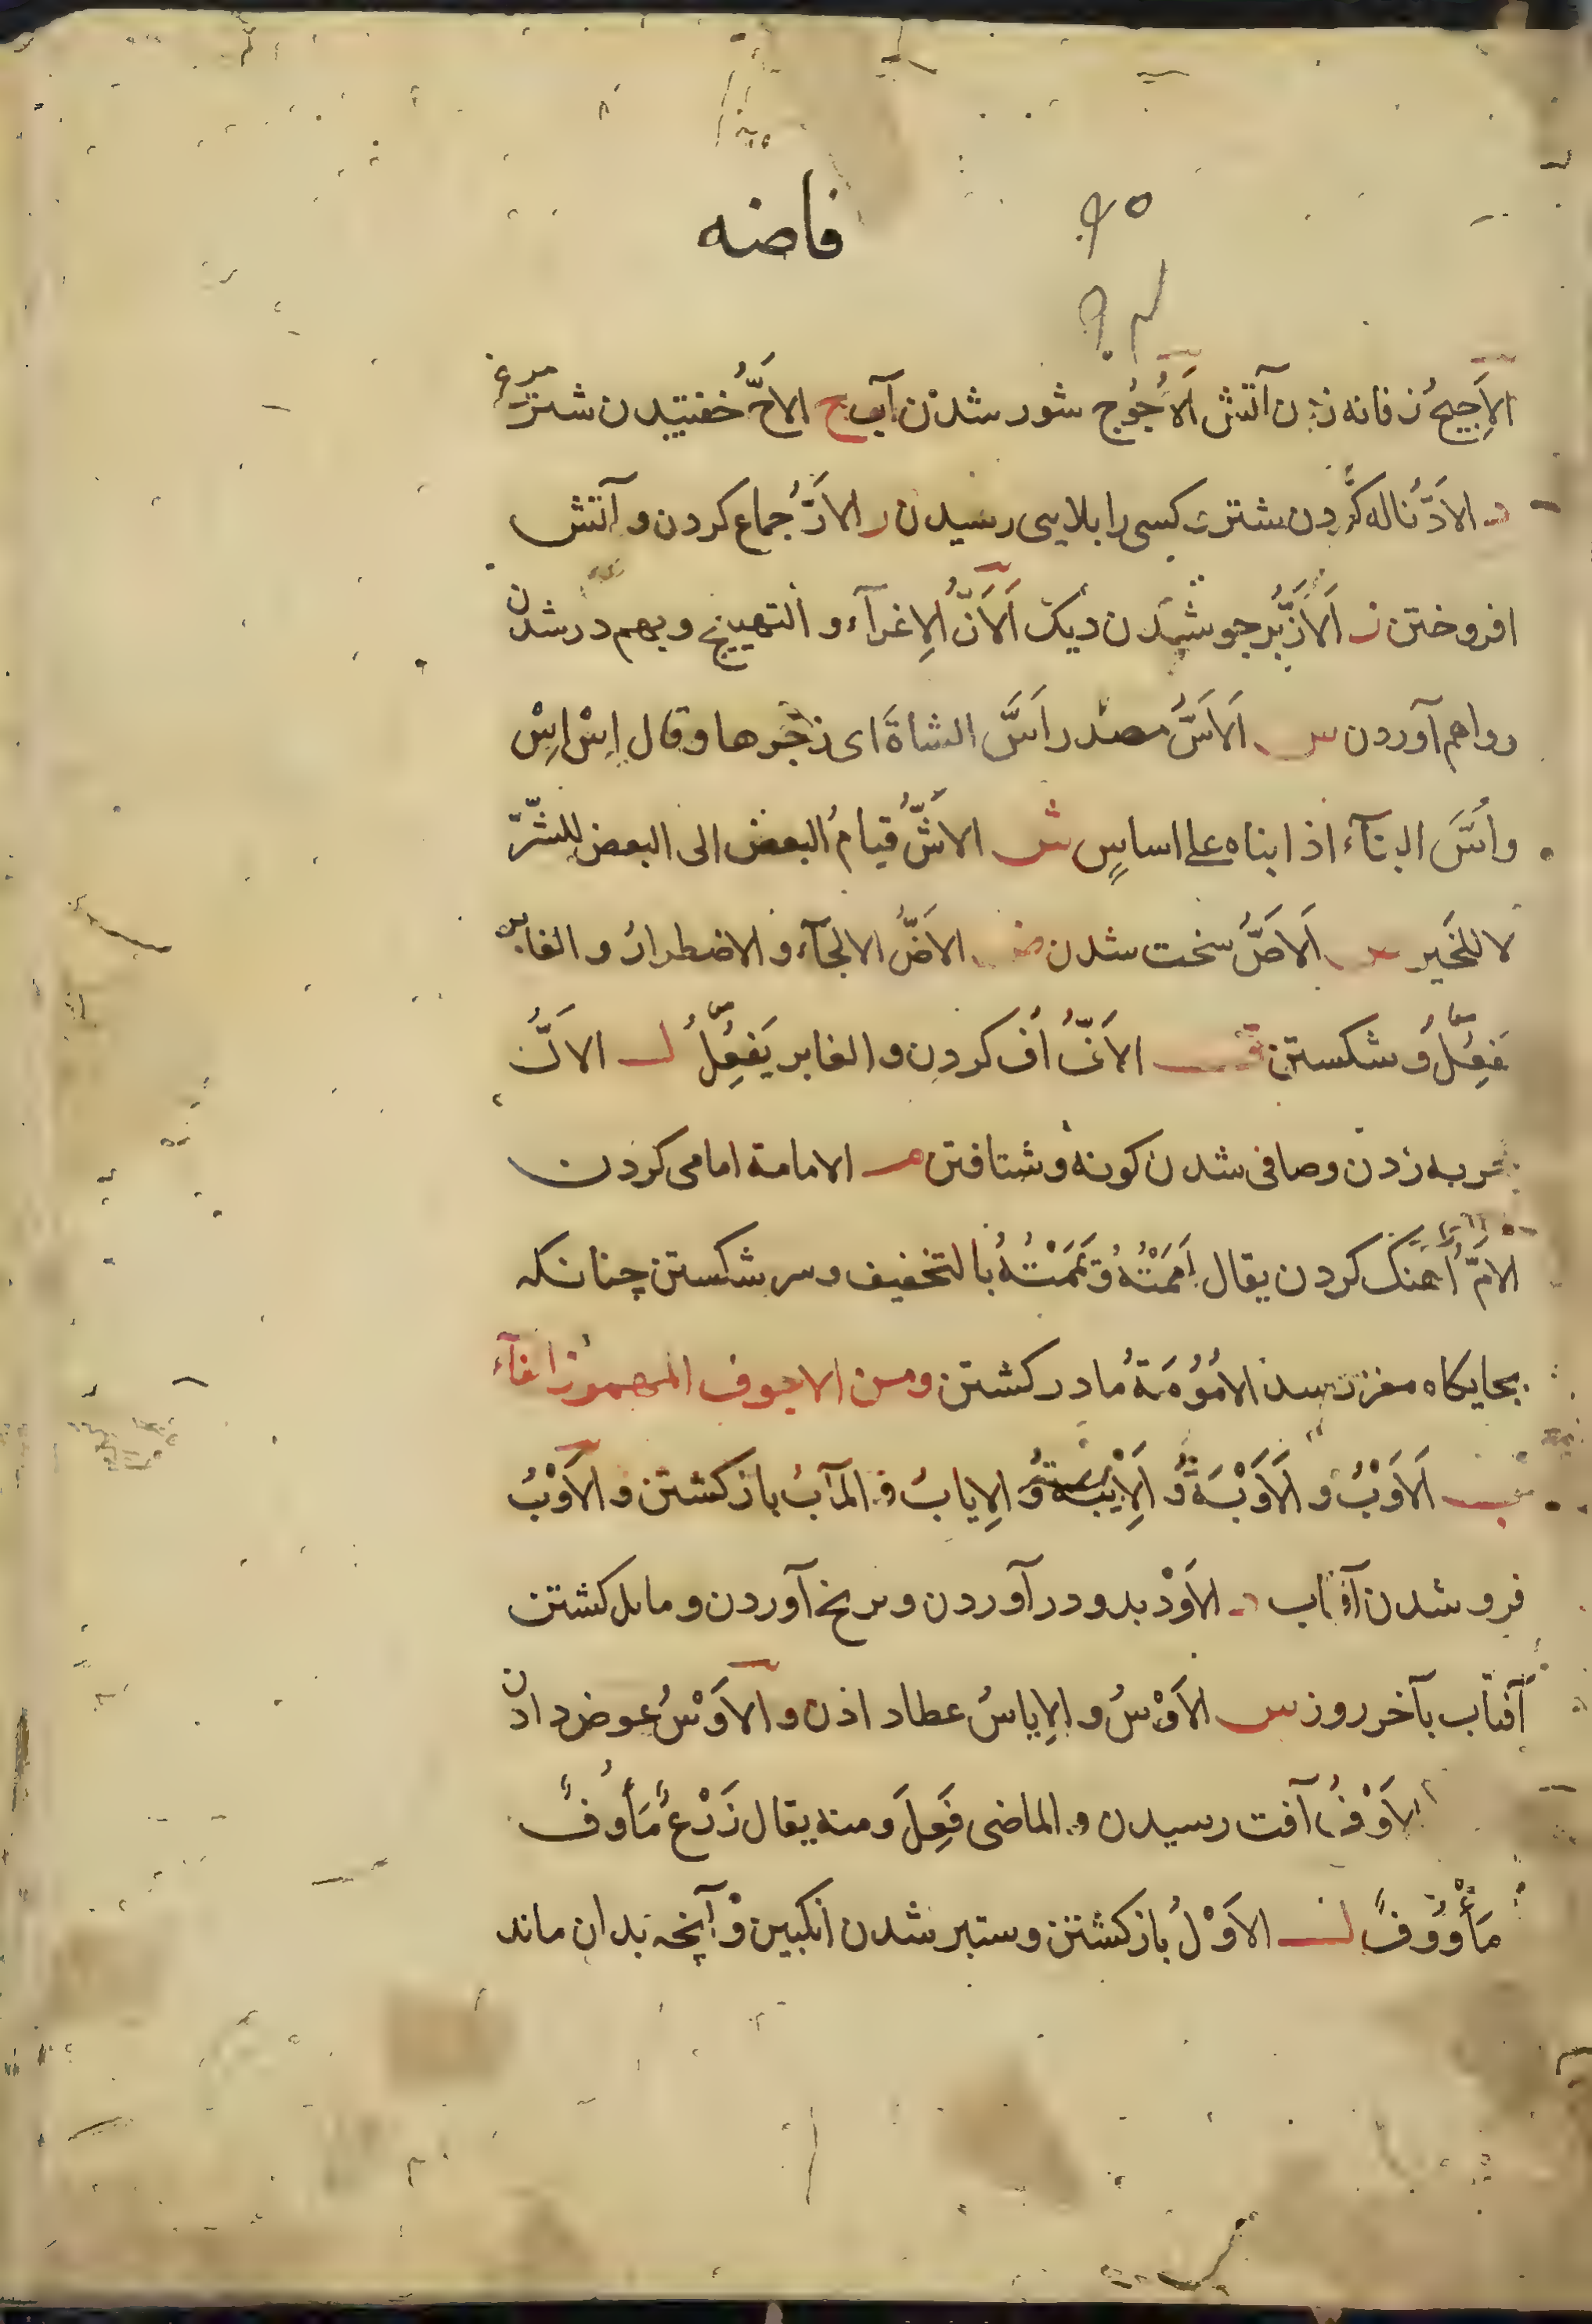 فاضه
الاَجیجُ زفانه زدن آتش اَلاُجُوج شور شدن آب ح الاَحُّ خفتیدن شتر مرغ
د الاَدُّ ناله کردن شتر و کسی را بلایی رسیدن ر الاَرُّ جماع کردن و آتش
افروختن ز اَلاَزُّ بر جوشیدن دیک اَلاَزُّ الاِغرآء و التهییج و بهم در شدن
و واهم آوردن س اَلاَسُّ مصدر اَسَّ الشاةَ ای زجرها و قال اِسْ اِسْ
واُسَّ البنآء اذا بناه علی اساسٍ ش الاَشُّ قیامُ البعض الی البعض للشّرّ
لا للخَیر ص اَلاَصُّ سخت شدن ض الاَضُّ الالجآء و الاضطرارُ و الغابر
یَفعِلُ و شکستن ف الاَفُّ اُف کردن و الغابر یَفعِلُ ل الاَلُّ
بحربه زدن و صافی شدن کونه و شتافتن م الامامة امامی کردن
الاَمّ آهنک کردن یقال اَمَمْتُهُ وَ یَمَمْتُهُ بالتخفیف و سر شکستن چنانکه
بجایکاه مغز رسد الاُمُوُمَةُ مادر کشتن ومن الاجوف المهموز الفآء
ب اَلاَوْبُ و اَلاَوْبَةُ وَ اَلاِیْبَةُ وَ الاِیابُ و المآبُ باز کشتن و الاَوْبُ
فرو شدن آفتاب د الاَوْدُ بدو در آوردن و برنج آوردن و مایل کشتن
آفتاب بآخر روز س الاَوْسُ و الاِیاسُ عطا دادن و الاَوْسُ عوض دادن
الاَوْفُ آفت رسیدن و الماضی فَعِلَ و منه یقال زَرْعٌ مَأوُفٌ
مَأْوُوفٌ ل الاَوْلُ باز کشتن و ستبر شدن انکبین وَ آنچه بدان ماند